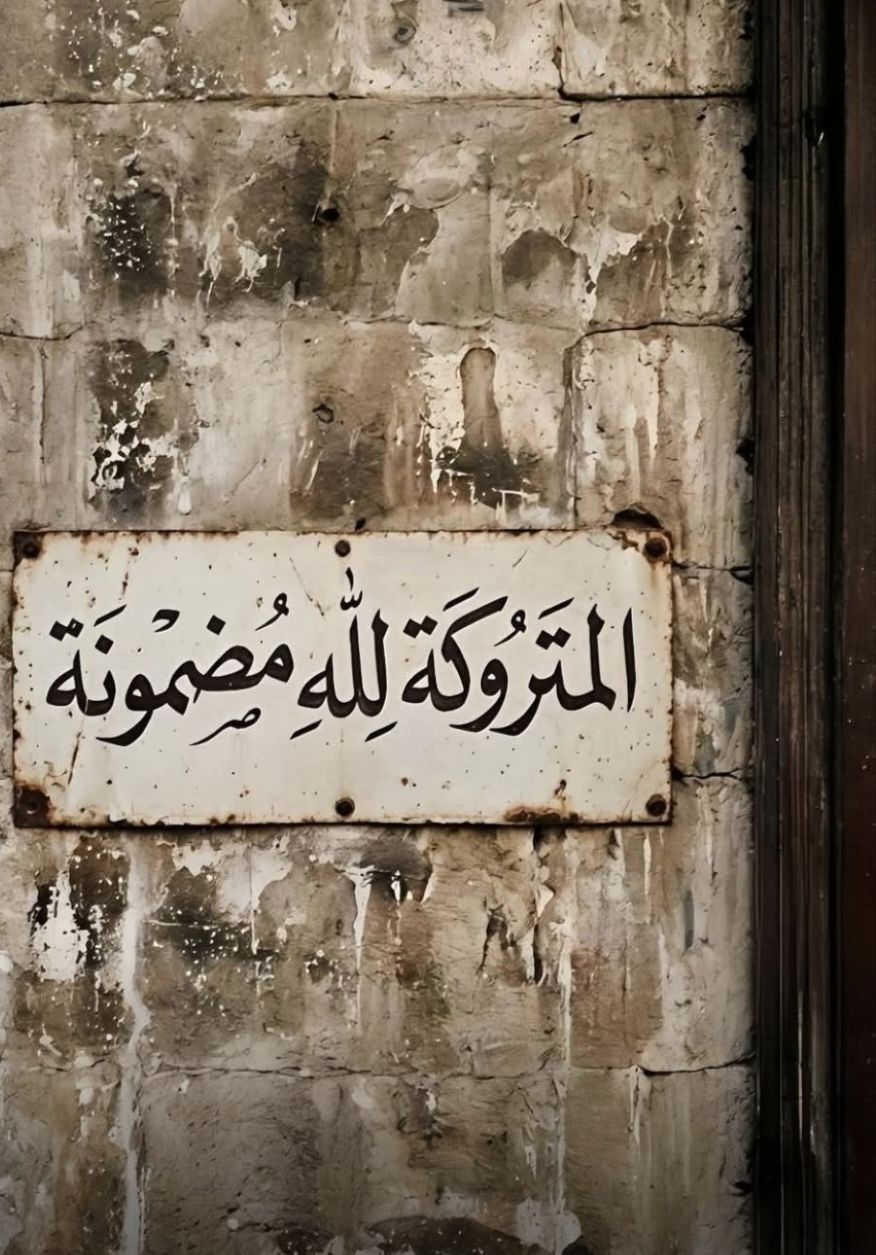 المَتَرُوكَة لِلّٰهِ مُضمْونَة